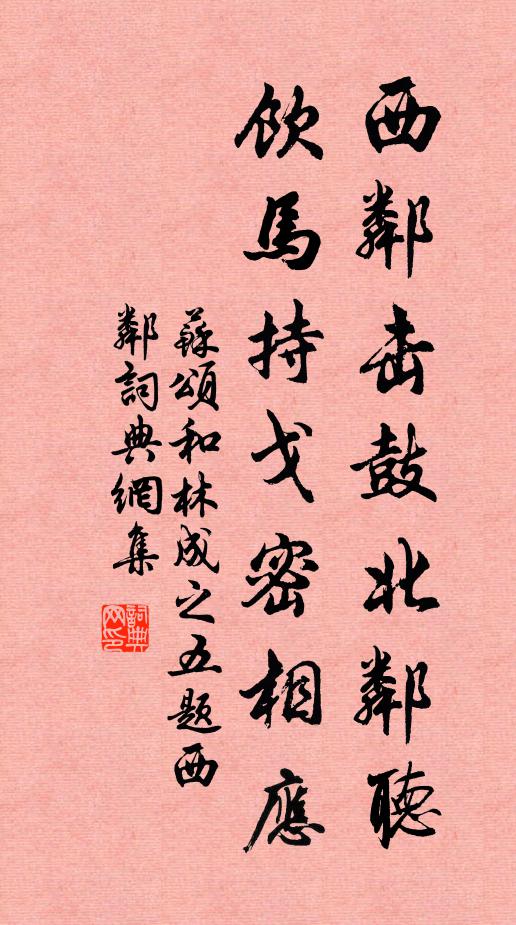 西鄰击鼓北鄰聽
飲馬持戈密相應
蘇頌和林成之五题西
鄰詞典網集
詞典
网印